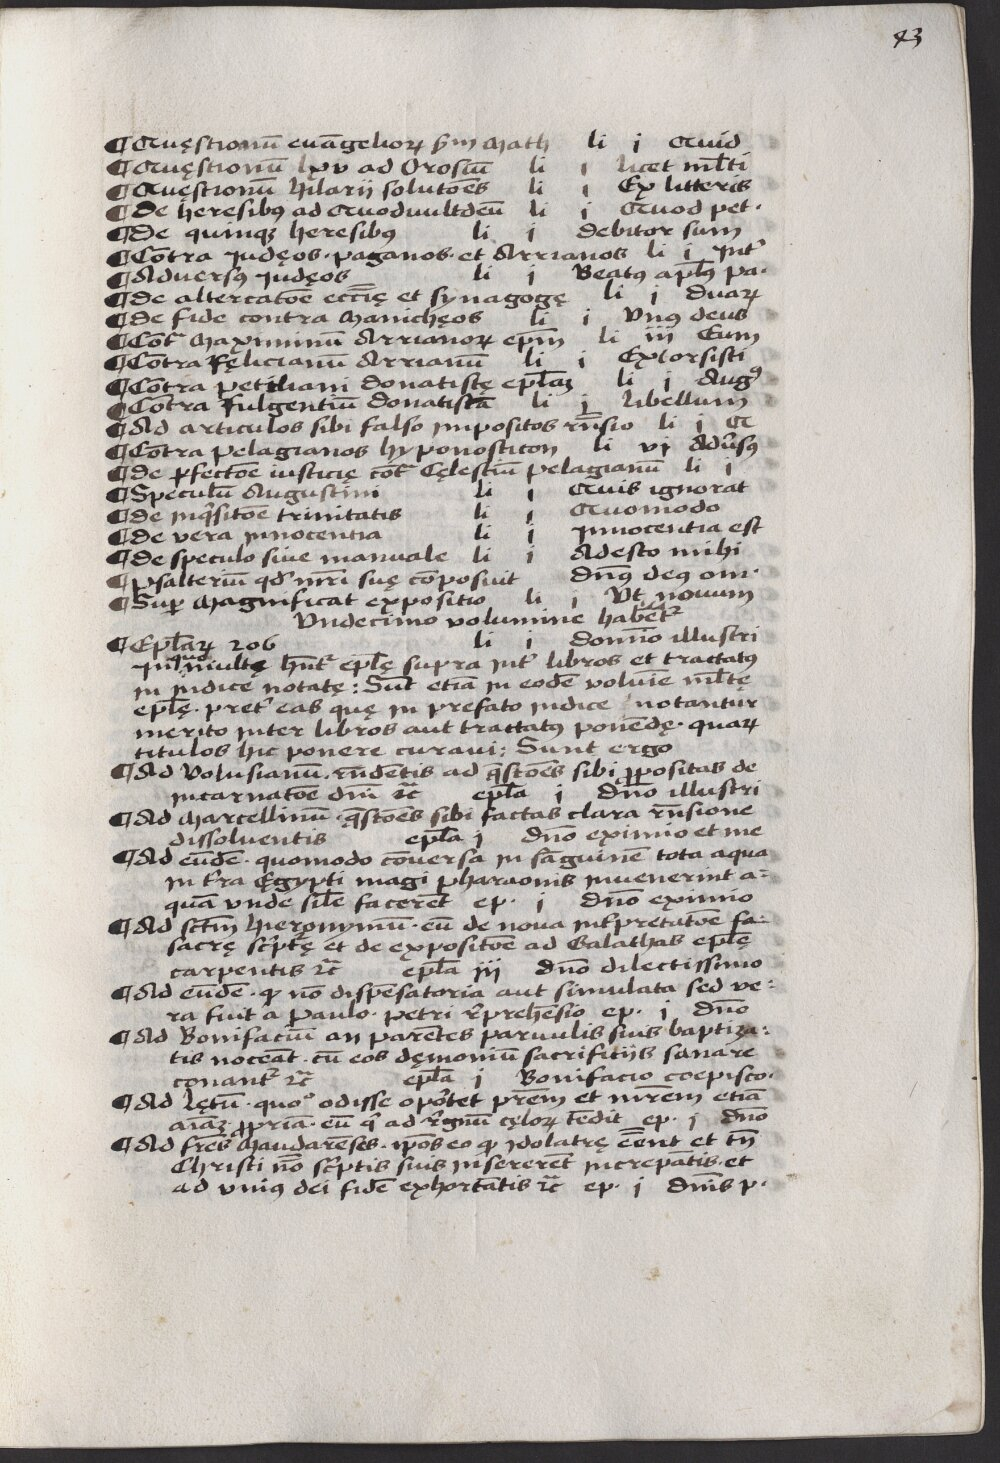 43
¶ Quęstionū euāgelioꝝ ẜm Math li i Quid
¶ Quęstionū lxv ad Orosiū li i licet ml̄ti
¶ Quęstionū hilarij solutōes li i Ex litteris
¶ De heresibꝰ ad Quodvultdeū li i Quod pet·
¶ De quinqꝫ heresibꝰ li i debitor sum
¶ Cōtra Judęos· paganos· et Arrianos li i Int̾
¶ Aduersꝰ Judęos li i Beatꝰ apl̄s pa·
¶ De altercatōe eccl̄ię et synagogę li i duaꝝ
¶ De fide contra Manichęos li i Vnꝰ deus
¶ Cōt̾ Maximinū Arrianoꝝ ep̄m li iii Eum
¶ Cōtra Fęlicianū Arrianū li i Extorsisti
¶ Cōtra petiliani Donatistę epl̄aꝫ li i Augꝰ
¶ Cōtra Fulgentiū Donatistā li i libellum
¶ Ad articulos sibi falso impositos rn̄sio li i Q
¶ Cōtra pelagianos hyponosticon li vi Adūsꝰ
¶ De ꝑfectōe iusticię cōt̾ Cęlestiū pelagianū li i
¶ Speculū Augustini li i Quis ignorat
¶ De inq̄sitōe trinitatis li i Quomodo
¶ De vera innocentia li i Innocentia est
¶ De speculo siue manuale li i Adesto mihi
¶ psalteriū qd̓ mr̄i suę cōposuit Dn̄s deꝰ om·
¶ Suꝑ Magnificat expositio li i Vt nouum
Vndecimo volumine habent̾
¶ Epl̄aꝝ 206 li i domīo illustri
In quo multę hn̄t̾ epl̄ę supra int̾ libros et tractatꝰ
in indice notatę: Sūt etiā in eodē voluīe ml̄tę
epl̄ę· pret̾ eas quę in prefato indice notantur
merito inter libros aut tractatꝰ ponēdę· quaꝝ
titulos hic ponere curaui: Sunt ergo
¶ Ad Volusianū· rn̄dentis ad q̄stōes sibi ꝓpositas de
incarnatōe dn̄i ⁊c̄ epl̄a i dn̄o illustri
¶ Ad Marcellinū· q̄stōes sibi factas clara rn̄sione
dissoluentis epl̄a i dn̄o eximio et me
¶ Ad eūdē· quomodo cōuersa in sāguinē tota aqua
in t̾ra Egypti magi pharaonis inuenerint a=
quā vnde sil̄e facerēt ep· i dn̄o eximio
¶ Ad sctm̄ hieronymū· eū de noua int̾pretatōe fa=
sacrę sc̓ptę et de expositōe ad Galathas epl̄ę
carpentis ⁊c̄ epl̄a iii dn̄o dilectissimo
¶ Ad eūdē· ꝙ nō dispēsatoria aut simulata sed ve=
ra fuit a paulo· petri r̓prehēsio ep· i dn̄o
¶ Ad Bonifaciū an parētes paruulis suis baptiza=
tis noceāt· cū eos dęmoniū sacrificijs sanare
conant̾ ⁊c̄ epl̄a i Bonifacio coepisco·
¶ Ad Lętū· quo° odisse oportet pr̄em et mr̄em etiā
aīaꝫ ꝓpriā· eū q̓ ad r̓gnū cęloꝝ tēdit ep· i dn̄o
¶ Ad fr̄es Maudarēses· ip̄os eo ꝙ ydolatrę eēnt et tn̄
Christi nō sc̓ptis suis insererēt increpātis· et
ad vniꝰ dei fidē exhortātis ⁊c̄ ep· i dn̄is p·